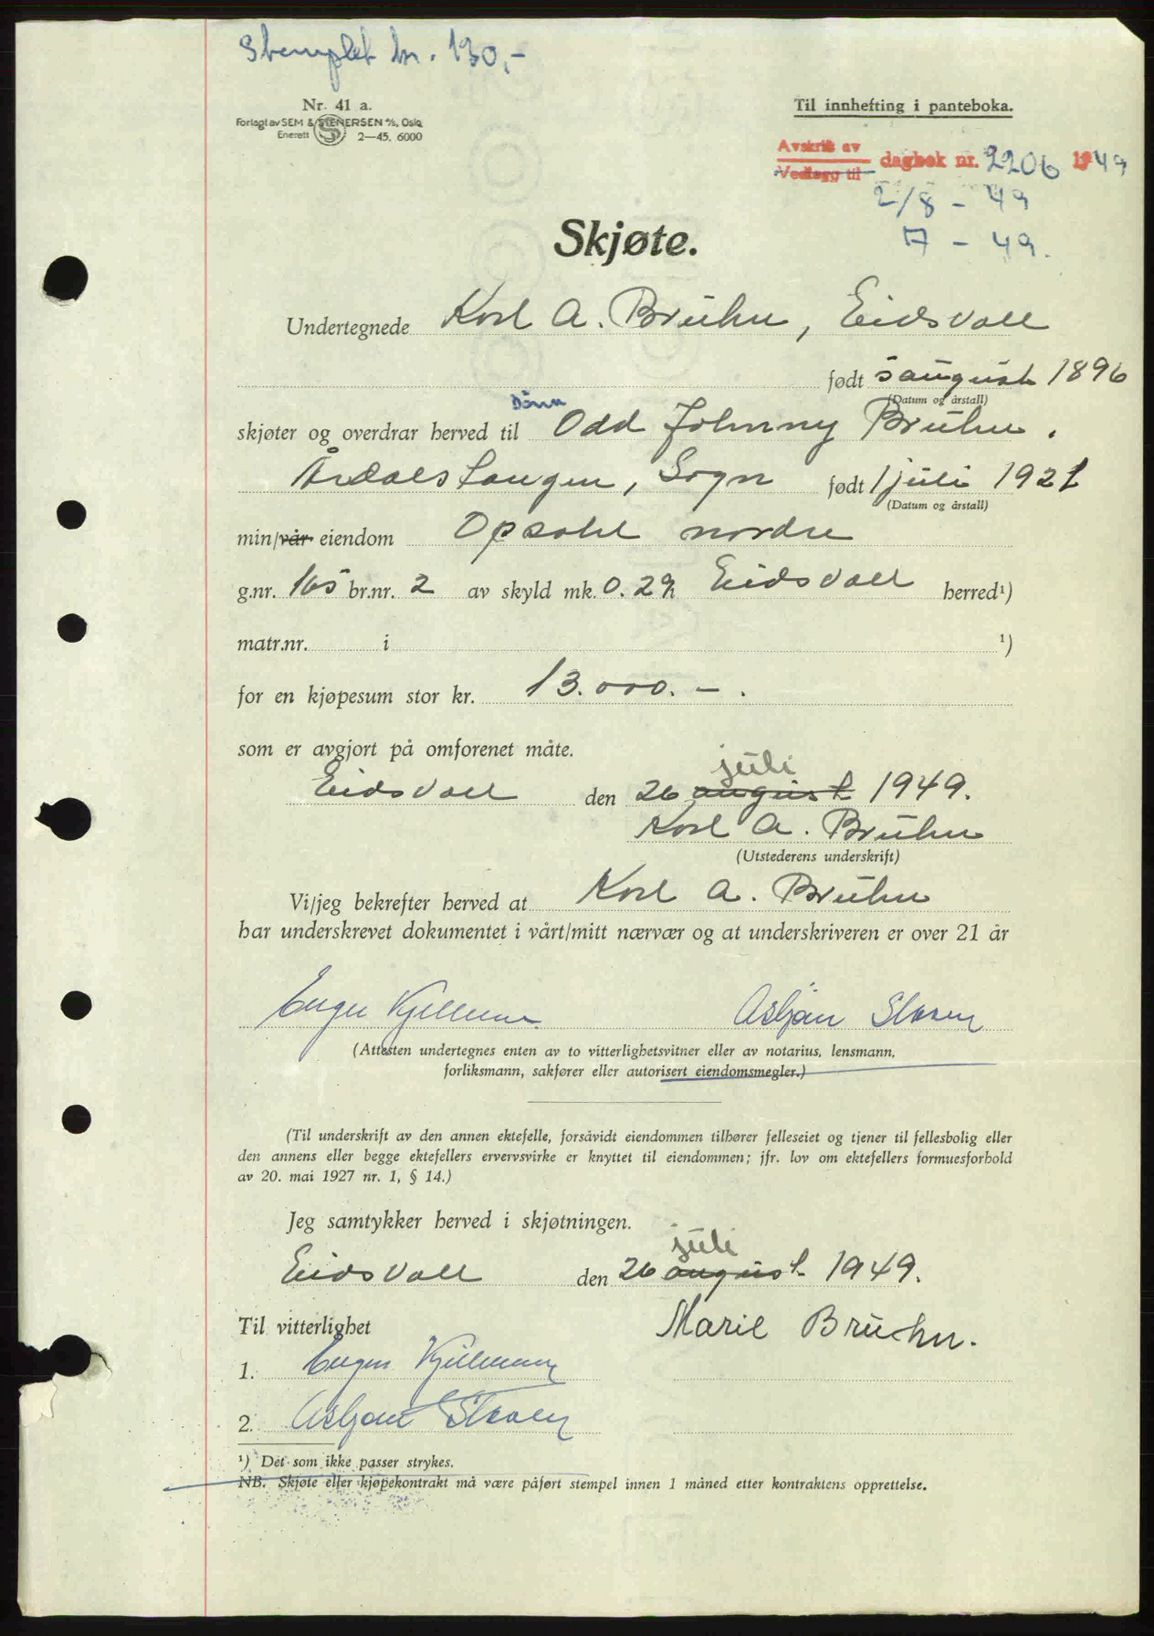 Stemplet kr. 130,-
Nr. 41 a.
Forlagt av SEM & STENERSEN A/S, Oslo
Enerett 2—45. 6000
Til innhefting i panteboka.
Avskrift av
Vedlegg til dagbok nr. 2206 1949
2/8 - 49
7 - 49.
Skjøte.
Undertegnede Karl A. Bruhn, Eidsvoll
født 5 august 1896
(Datum og årstall)
sønn
skjøter og overdrar herved til Odd Johnny Bruhn.
Årdalstangen, Sogn født 1 juli 1921
(Datum og årstall)
min/vår eiendom Opsahl nordre
g.nr. 165 br.nr. 2 av skyld mk. 0.29 i Eidsvoll herred¹)
matr.nr. i ¹)
for en kjøpesum stor kr. 13.000.-.
som er avgjort på omforenet måte.
juli
Eidsvoll den 26 august 1949.
Karl A. Bruhn
(Utstederens underskrift)
Vi/jeg bekrefter herved at Karl A. Bruhn
har underskrevet dokumentet i vårt/mitt nærvær og at underskriveren er over 21 år
(Attesten undertegnes enten av to vitterlighetsvitner eller av notarius, lensmann,
forliksmann, sakfører eller autorisert eiendomsmegler.)
(Til underskrift av den annen ektefelle, forsåvidt eiendommen tilhører felleseiet og tjener til fellesbolig eller
den annens eller begge ektefellers ervervsvirke er knyttet til eiendommen; jfr. lov om ektefellers formuesforhold
av 20. mai 1927 nr. 1, § 14.)
Jeg samtykker herved i skjøtningen.
juli
Eidsvoll den 26 august 1949.
Til vitterlighet Marie Bruhn.
1.
2.
¹) Det som ikke passer strykes.
NB. Skjøte eller kjøpekontrakt må være påført stempel innen 1 måned etter kontraktens opprettelse.